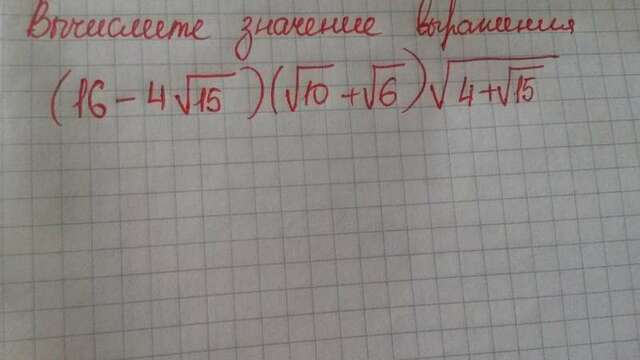 Вычислите значение выражения
(16 - 4√15)(√10 + √6)√4+√15